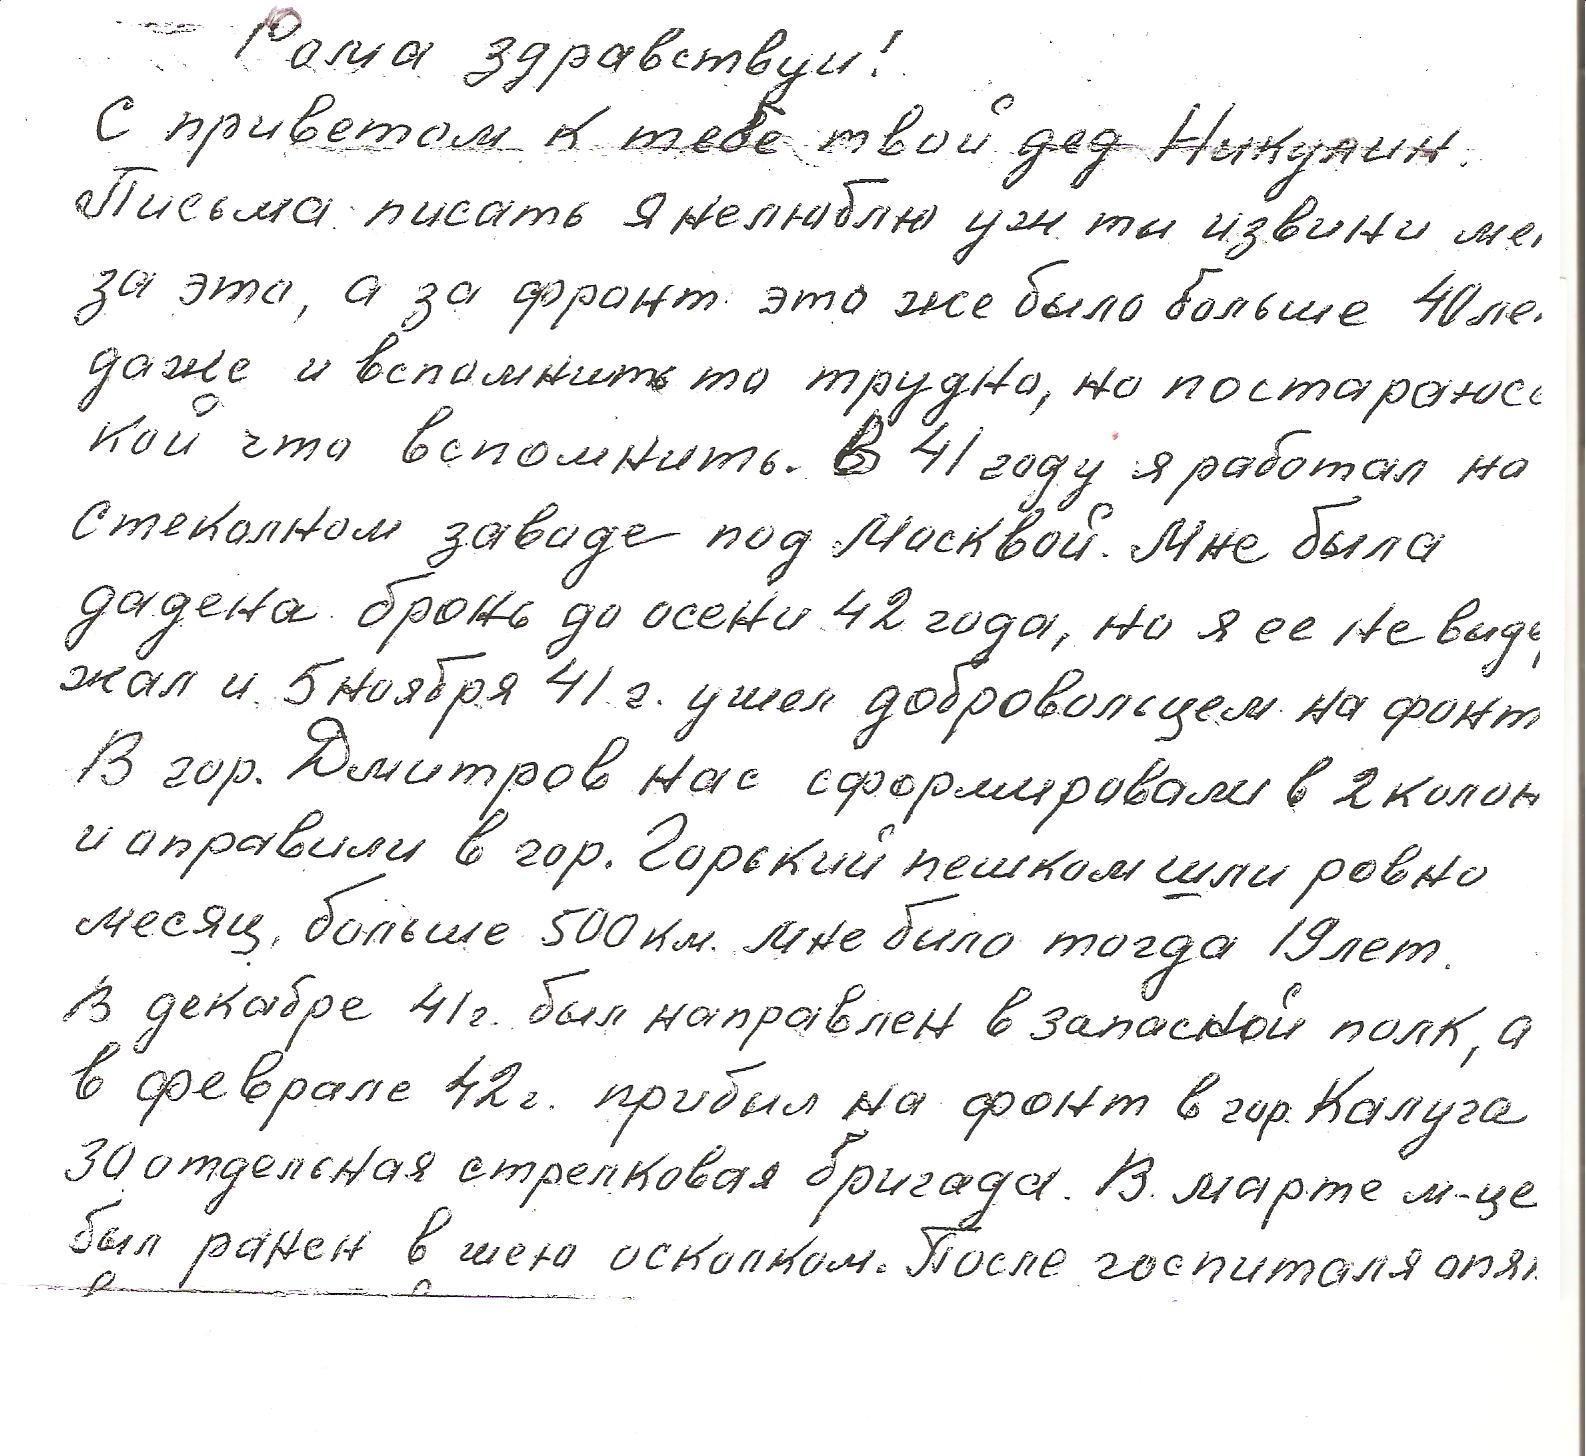 Рома здравствуи!
С приветом к тебе твой дед Никулин.
Письма писать я нелюблю уж ты извини ме
за это, а за фронт это же было больше 40 ле
даже и вспомнить то трудно, но постараюсь
кой что вспомнить. В 41 году я работал на
стеколном заводе под Москвой. Мне была
дадена бронь до осени 42 года, но я ее не выде
жал и 5 ноября 41 г. ушел добровольцем на фонт
В гор. Дмитров нас сформировали в 2 колон
и оправили в гор. Горький пешком шли ровно
месяц, больше 500 км. Мне было тогда 19 лет.
В декабре 41 г. был направлен в запасной полк, а
в феврале 42 г. прибыл на фонт в гор. Калуга
30 отдельная стрелковая бригада. В марте м-це
был ранен в шею осколком. После госпиталя опят